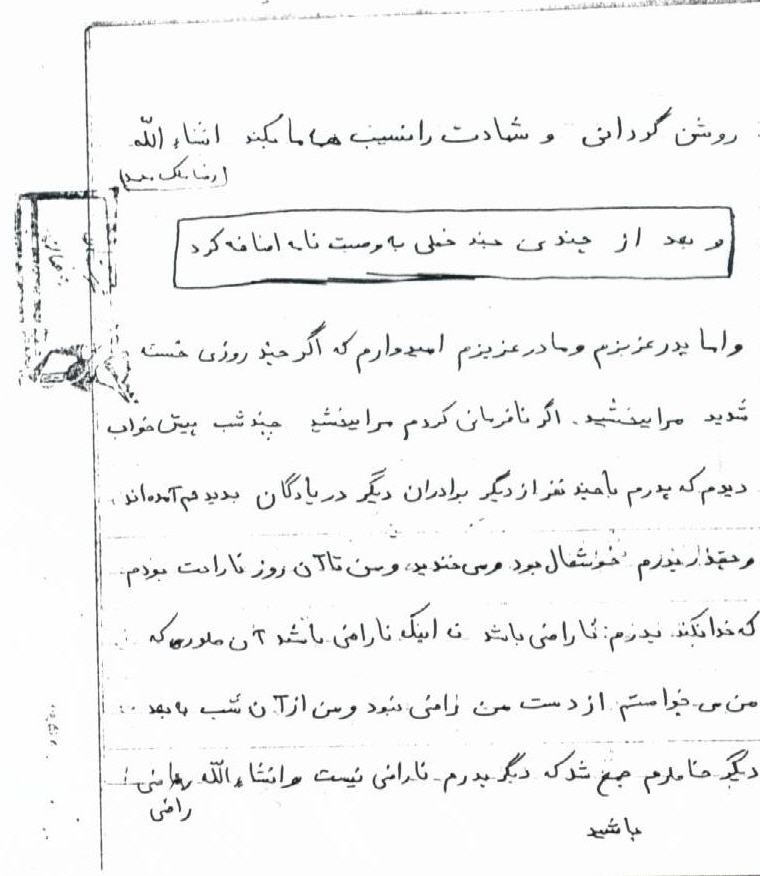 روشن گردانی و شهادت را نصیب همه ما بکند انشاء الله
و بعد از چندی چند خطی به وصیت نامه اضافه کرد
و اما پدر عزیزم و مادر عزیزم امیدوارم که اگر چند روزی خسته
شدید مرا ببخشید. اگر نافرمانی کردم مرا ببخشید چند شب پیش خواب
دیدم که پدرم با چند نفر از دیگر برادران دیگر در پادگان بدیدنم آمده‌اند.
و چقدر پدرم خوشحال بود و می خندید، و من تا آن روز ناراحت بودم
که خدا نکند پدرم ناراضی باشد نه اینکه ناراضی باشد آن طوری که
من می خواستم از دست من راضی نبود و من از آن شب به بعد
دیگر خاطرم جمع شد که دیگر پدرم ناراضی نیست و انشاء الله
راضی
باشید